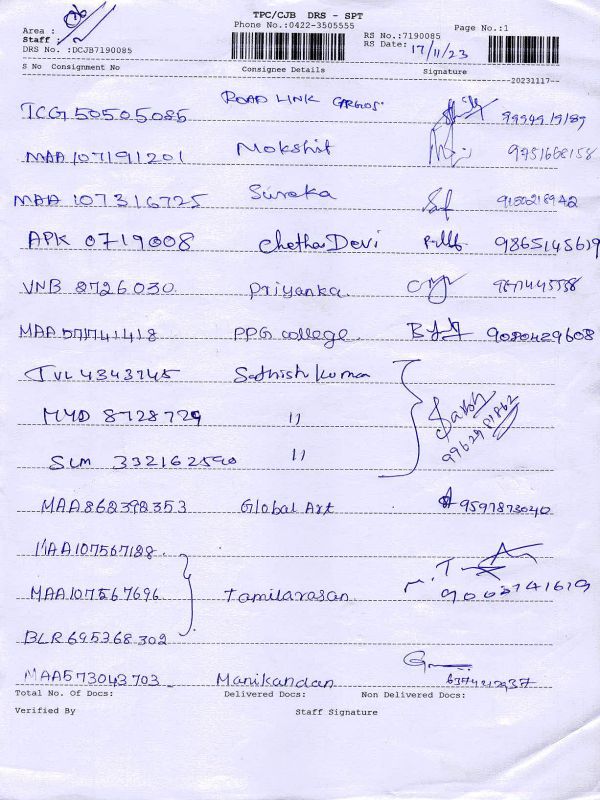 TPC/CJB DRS - SPT
Phone No.:0422-3505555
Page No.:1
Area :
Staff :
DRS No. :DCJB7190085
RS No.:7190085
RS Date: 17/11/23
S No Consignment No Consignee Details Signature
--20231117--
TCG 50505085 ROAD LINK CARGOS.
MAA 107191201 Mokshit 9751668158
MAA 107316725 Sureka 9150218942
APK 0719008 Chetha Devi 9865145619
VNB 8726030 Priyanka
MAA 571741418 PPG college 9080429608
TVL 4343745 Sathish kumar
MYD 8728729 "
99629 81862
SLM 332162590 "
MAA 862398353 Global Art 9597873040
MAA107567188
MAA107567696 Tamilarasan 9003741619
BLR 695368302
MAA573043703 Manikandan 6374212937
Total No. Of Docs: Delivered Docs: Non Delivered Docs:
Verified By Staff Signature